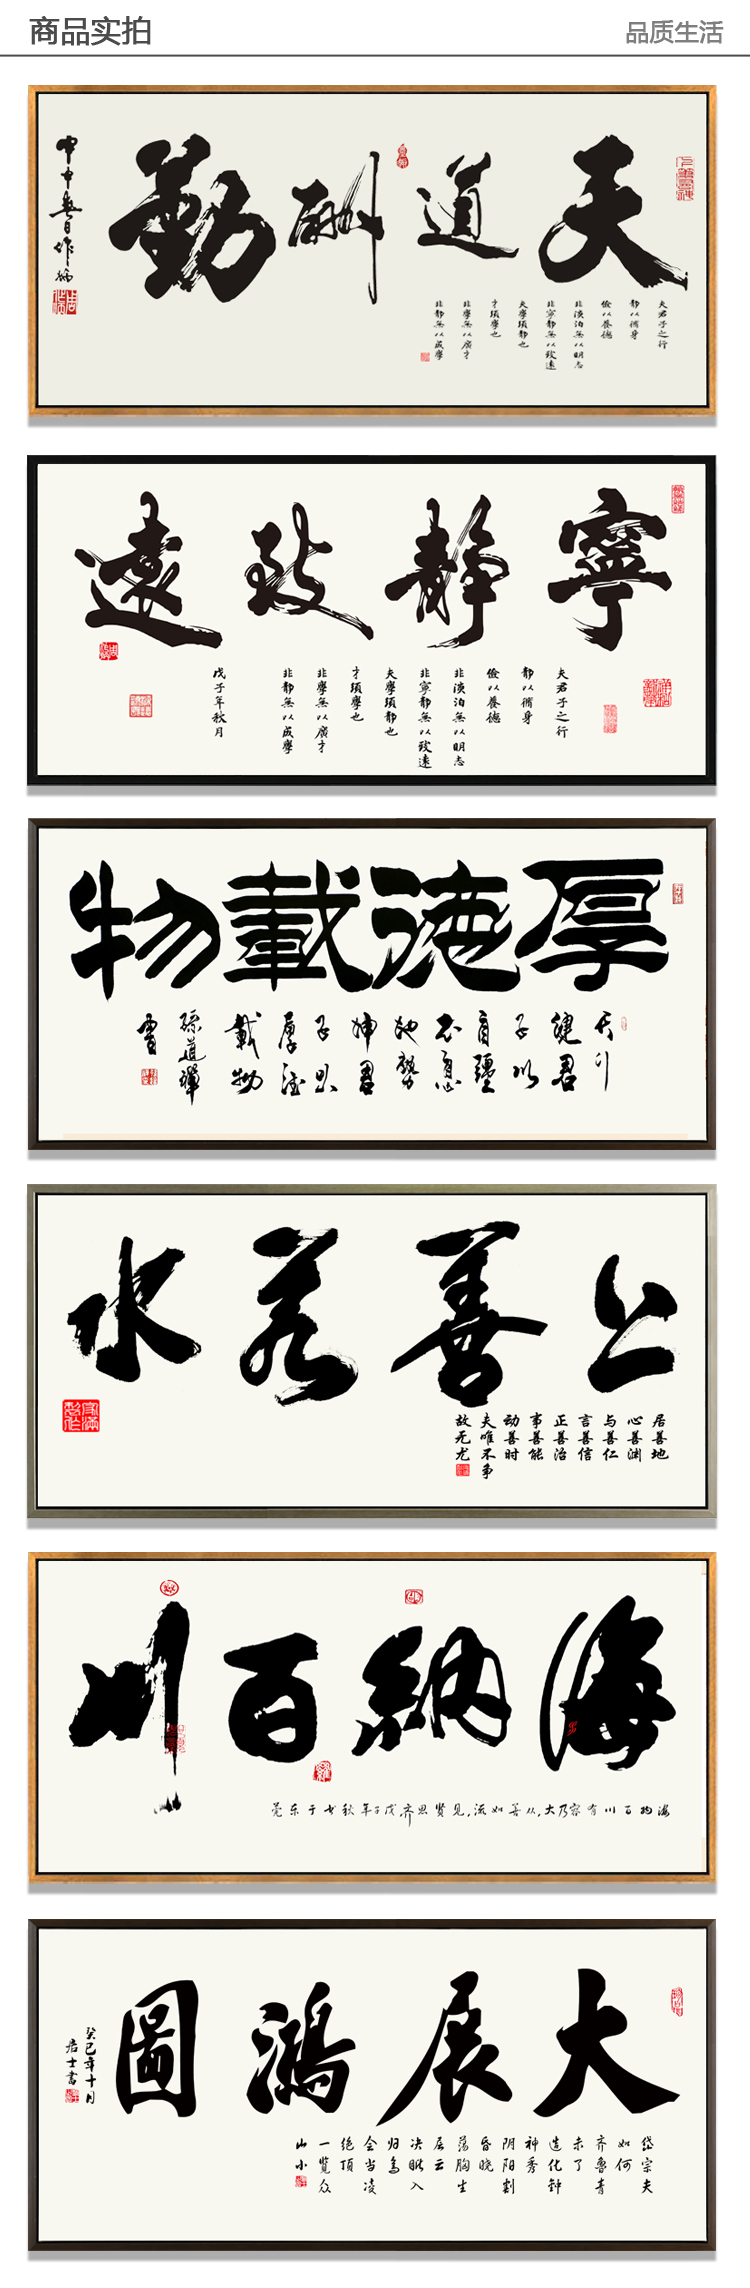 商品实拍
品质生活
天道酬勤
甲申春日作
夫君子之行
静以脩身
儉以養德
非淡泊無以明志
非寧静無以致遠
夫學須静也
才須學也
非學無以廣才
非静無以成學
寧靜致遠
夫君子之行
静以脩身
儉以養德
非淡泊無以明志
非寧静無以致遠
夫學須静也
才須學也
非學無以廣才
非静無以成學
戊子年秋月
厚德載物
天行
健君
子以
自疆
不息
地勢
坤君
子以
厚德
載物
上善若水
居善地
心善渊
与善仁
言善信
正善治
事善能
动善时
夫唯不争
故无尤
海納百川
海纳百川有容乃大,从善如流,见贤思齐戊子年秋
大展鴻圖
岱宗夫
如何
齐鲁青
未了
造化钟
神秀
阴阳割
昏晓
荡胸生
层云
决眦入
归鸟
会当凌
绝顶
一览众
山小
癸巳年十月
居士書